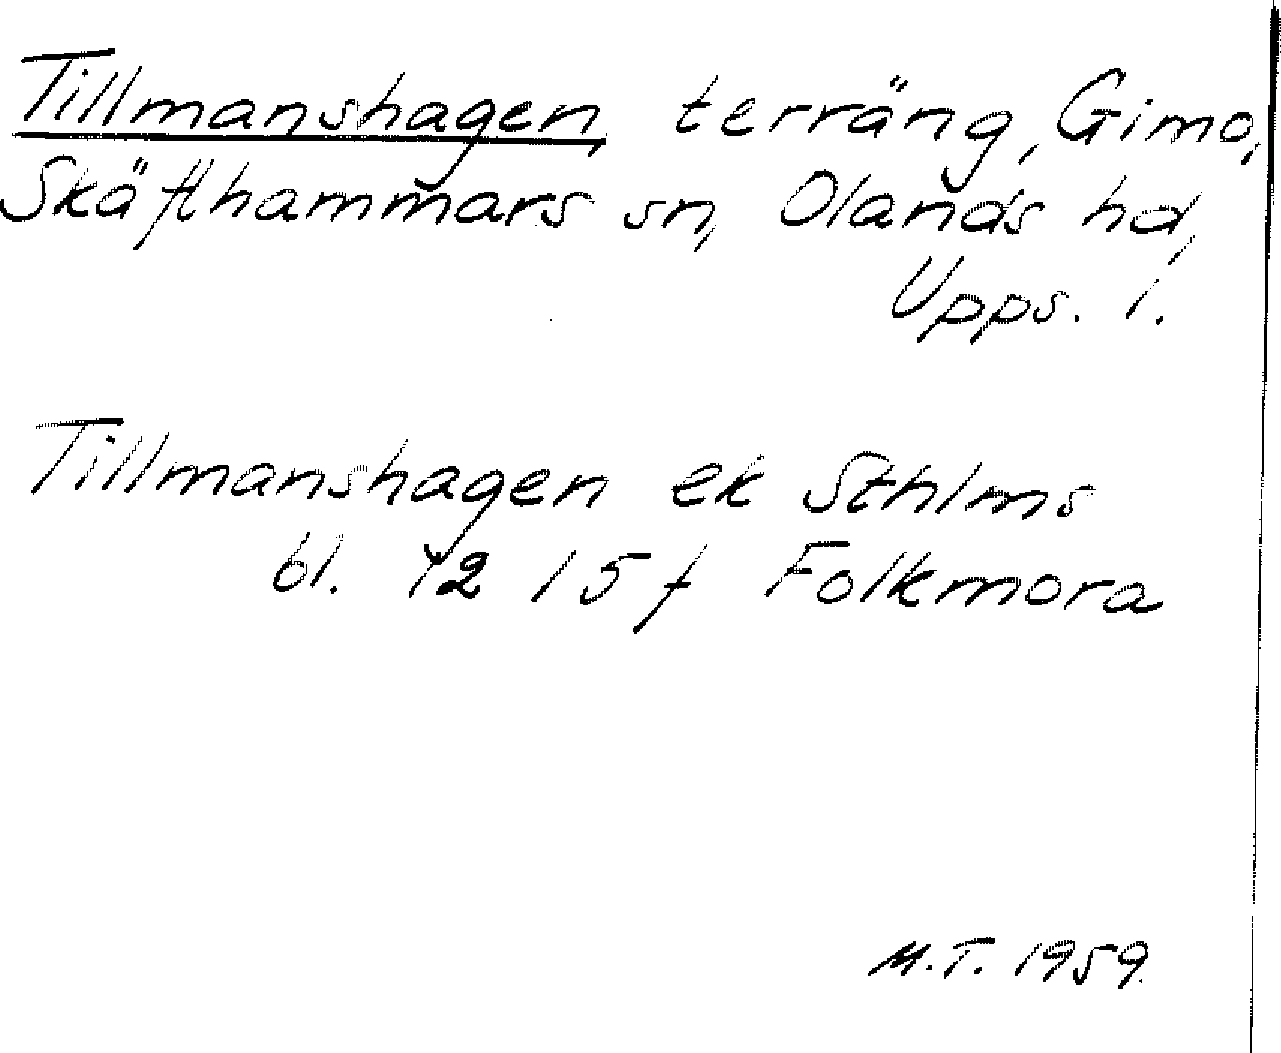 Tillmanshagen, terräng, Gimo,
Skäfthammars sn, Olands hd,
Upps. l.
Tillmanshagen ek Sthlms
bl. 42 15f Folkmora
M.T. 1959